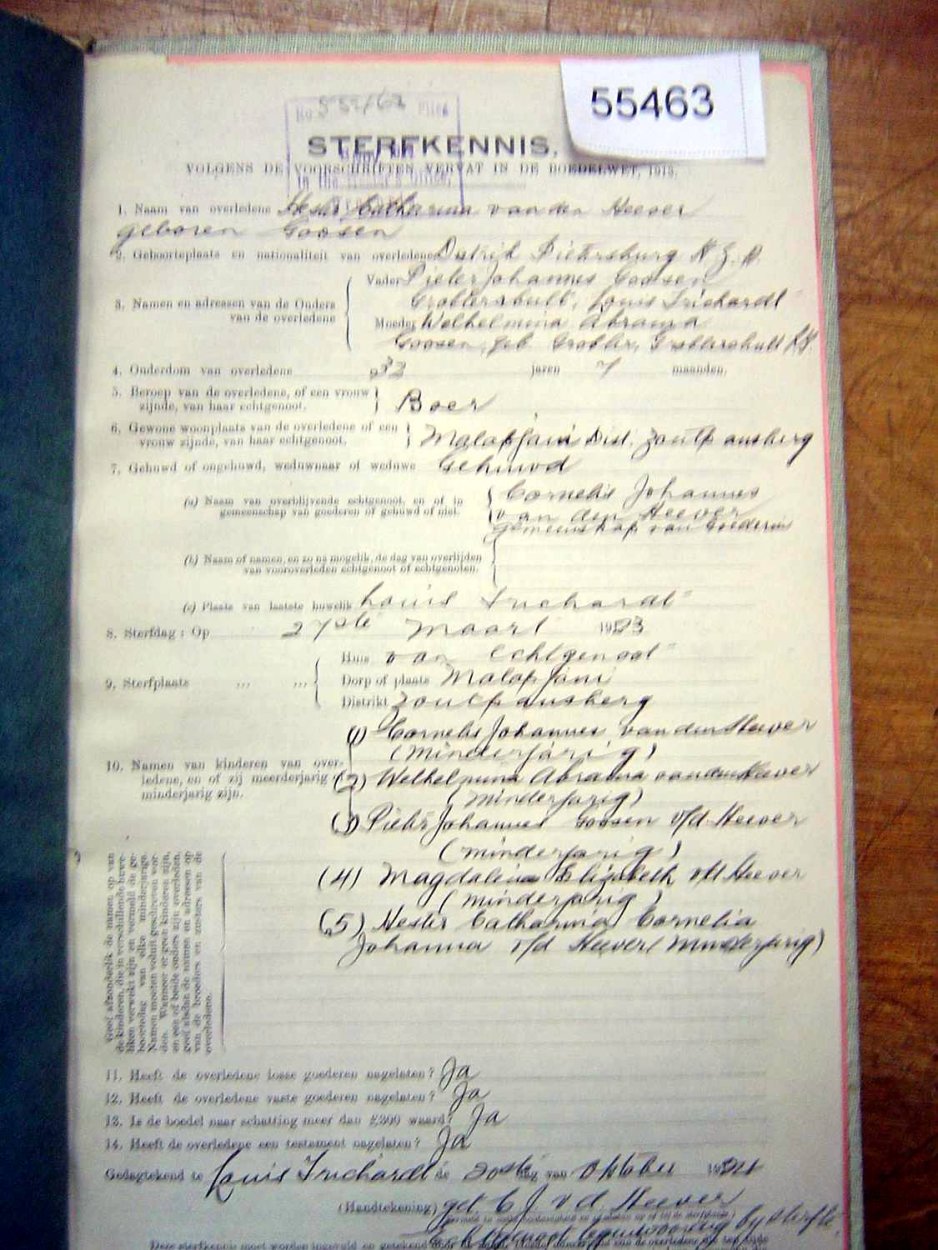 55463
No. 55463 Filed
STERFKENNIS.
VOLGENS DE VOORSCHRIFTEN VERVAT IN DE BOEDELWET, 1913.
1. Naam van overledene Hester Catharina van den Heever
geboren Goosen
2. Geboorteplaats en nationaliteit van overledene Distrik Pietersburg Z.A.
Vader Pieter Johannes Goosen
Groblersbult, Louis Trichardt
3. Namen en adressen van de Ouders van de overledene
Moeder Welhelmina Abrama
Goosen, geb. Grobler, Groblersbult
4. Ouderdom van overledene 32 jaren 7 maanden.
5. Beroep van de overledene, of een vrouw zijnde, van haar echtgenoot. Boer
6. Gewone woonplaats van de overledene of een vrouw zijnde, van haar echtgenoot. Malapfani Dist. Zoutpansberg
7. Gehuwd of ongehuwd, weduwnaar of weduwe Gehuwd
(a) Naam van overblijvende echtgenoot, en of in gemeenschap van goederen of gehuwd of niet.
Cornelis Johannes
van den Heever
gemeenskap van Goederen
(b) Naam of namen, en zo na mogelik, de dag van overlijden van vooroverleden echtgenoot of echtgenoten.
(c) Plaats van laatste huwelik Louis Trichardt
8. Sterfdag: Op 27ste Maart 1923
9. Sterfplaats ... ...
Huis van Echtgenoot
Dorp of plaats Malapfani
Distrikt Zoutpansberg
10. Namen van kinderen van overledene, en of zij meerderjarig of minderjarig zijn.
(1) Cornelis Johannes van den Heever
(minderjarig)
(2) Welhelmina Abrama van den Heever
(minderjarig)
(3) Pieter Johannes Goosen v/d Heever
(minderjarig)
(4) Magdalena Elizabeth v/d Heever
(minderjarig)
(5) Hester Catharina Cornelia
Johanna v/d Heever (minderjarig)
Geef afzonderlik de namen op van
de kinderen, die in verschillende huwe-
liken verwekt zijn en vermeld de ge-
boortedag van elke minderjarige.
Namen moeten voluit geschreven wor-
den. Wanneer er geen kinderen zijn,
en een of beide ouders zijn overleden,
geef alsdan de namen en adressen op
van de broeders en zusters van de
overledene.
11. Heeft de overledene losse goederen nagelaten? Ja
12. Heeft de overledene vaste goederen nagelaten? Ja
13. Is de boedel naar schatting meer dan £300 waard? Ja
14. Heeft de overledene een testament nagelaten? Ja
Gedagtekend te Louis Trichardt de 20ste dag van Oktober 19
(Handtekening) get. C J. v d. Heever
Echtgenoot tegenwoordig by sterfte
Deze sterfkennis moet worden ingevuld en getekend